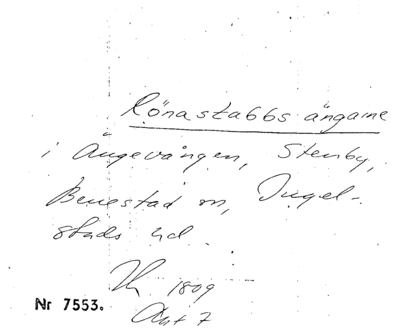 Rönastabbs ängarne
i Ängavången, Stenby,
Benestad sn, Ingel-
stads hd.
1809
Akt 7
Nr 7553.